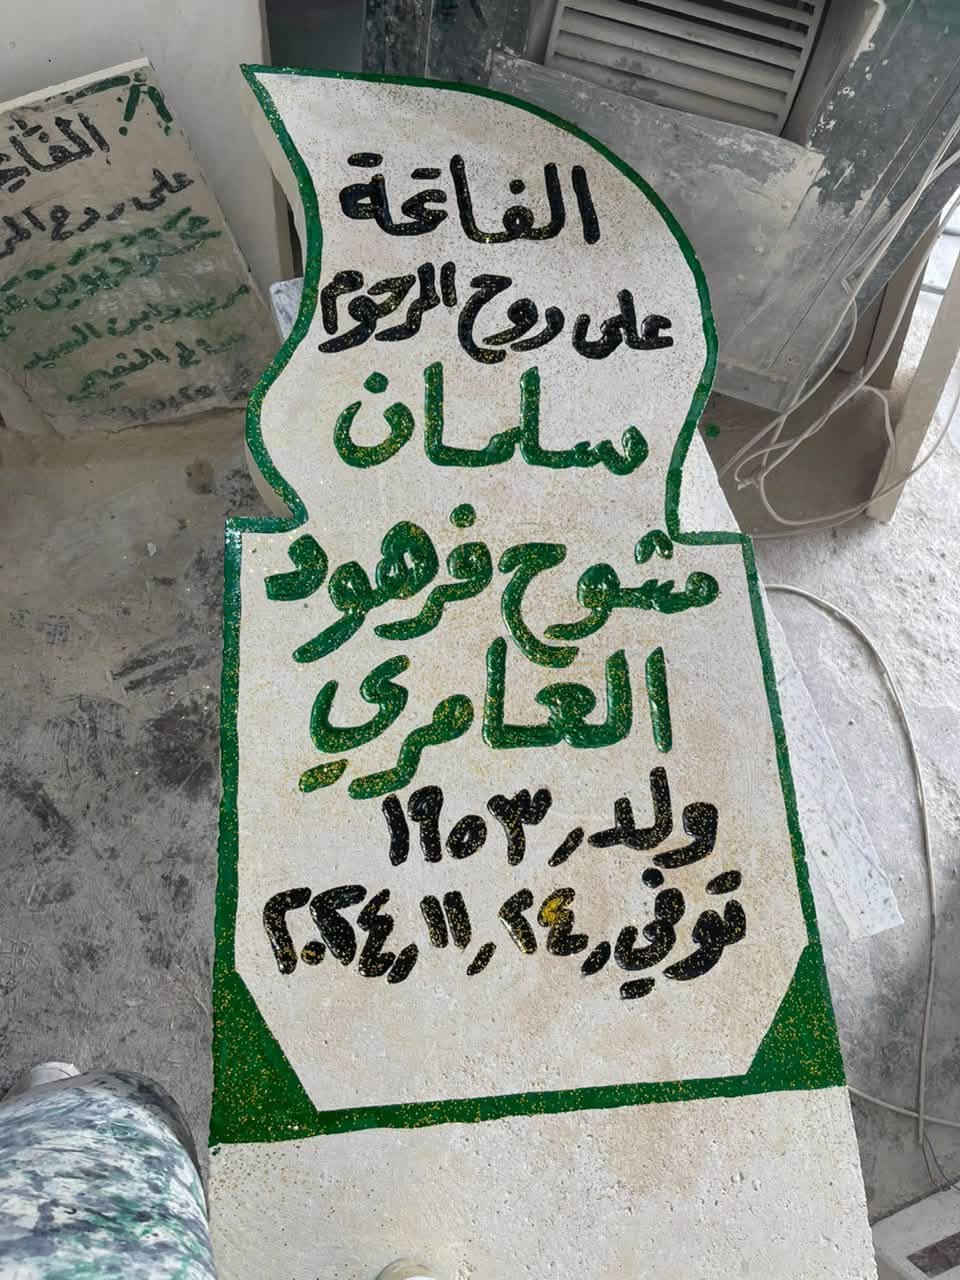 الفاتحة
على روح المرحوم
سلمان
مشوح فرهود
العامري
ولد، ١٩٥٣
توفي، ٢٤، ١١، ٢٠٢٤
الفاتح
على روح المر